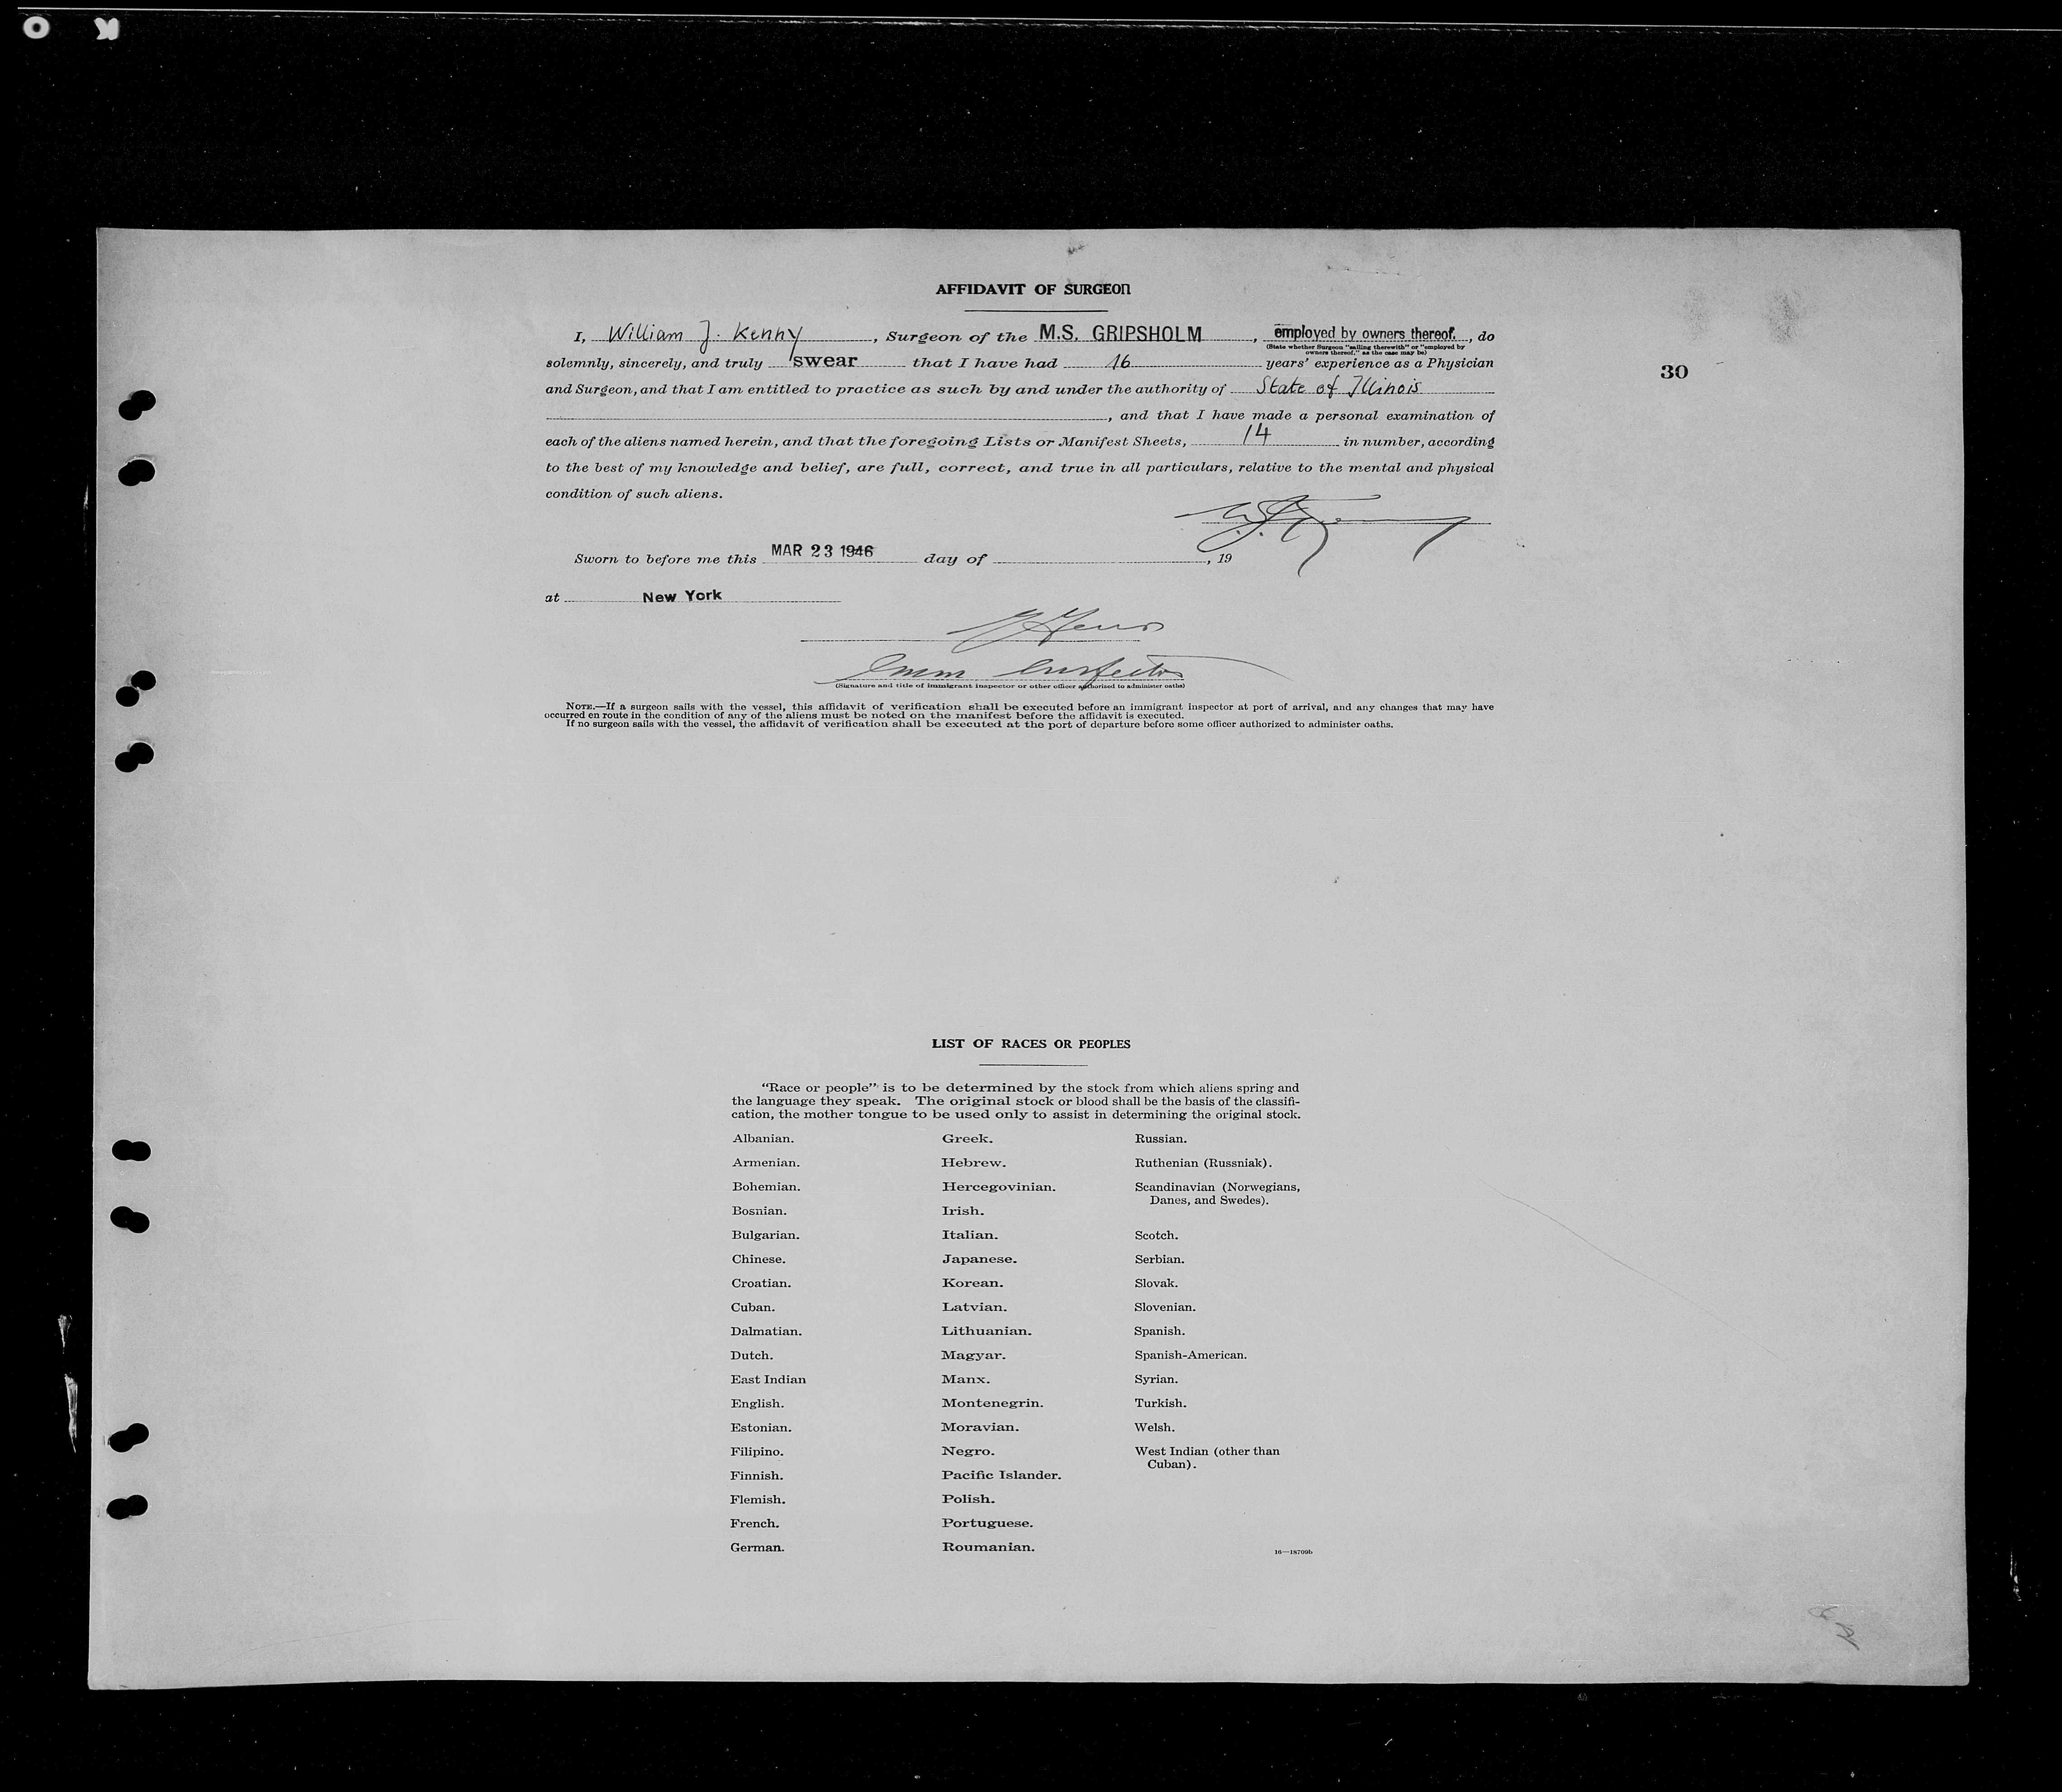 AFFIDAVIT OF SURGEON
I, William J. Kenny, Surgeon of the M.S. GRIPSHOLM, employed by owners thereof., do
(State whether Surgeon "sailing therewith" or "employed by
owners thereof," as the case may be)
solemnly, sincerely, and truly swear that I have had 16 years' experience as a Physician
30
and Surgeon, and that I am entitled to practice as such by and under the authority of State of Illinois
, and that I have made a personal examination of
each of the aliens named herein, and that the foregoing Lists or Manifest Sheets, 14 in number, according
to the best of my knowledge and belief, are full, correct, and true in all particulars, relative to the mental and physical
condition of such aliens.
Sworn to before me this MAR 23 1946 day of , 19
at New York
Imm Inspector
(Signature and title of immigrant inspector or other officer authorized to administer oaths)
NOTE.—If a surgeon sails with the vessel, this affidavit of verification shall be executed before an immigrant inspector at port of arrival, and any changes that may have
occurred en route in the condition of any of the aliens must be noted on the manifest before the affidavit is executed.
If no surgeon sails with the vessel, the affidavit of verification shall be executed at the port of departure before some officer authorized to administer oaths.
LIST OF RACES OR PEOPLES
"Race or people" is to be determined by the stock from which aliens spring and
the language they speak. The original stock or blood shall be the basis of the classifi-
cation, the mother tongue to be used only to assist in determining the original stock.
Albanian.
Armenian.
Bohemian.
Bosnian.
Bulgarian.
Chinese.
Croatian.
Cuban.
Dalmatian.
Dutch.
East Indian
English.
Estonian.
Filipino.
Finnish.
Flemish.
French.
German.
Greek.
Hebrew.
Hercegovinian.
Irish.
Italian.
Japanese.
Korean.
Latvian.
Lithuanian.
Magyar.
Manx.
Montenegrin.
Moravian.
Negro.
Pacific Islander.
Polish.
Portuguese.
Roumanian.
Russian.
Ruthenian (Russniak).
Scandinavian (Norwegians,
Danes, and Swedes).
Scotch.
Serbian.
Slovak.
Slovenian.
Spanish.
Spanish-American.
Syrian.
Turkish.
Welsh.
West Indian (other than
Cuban).
16—18709b